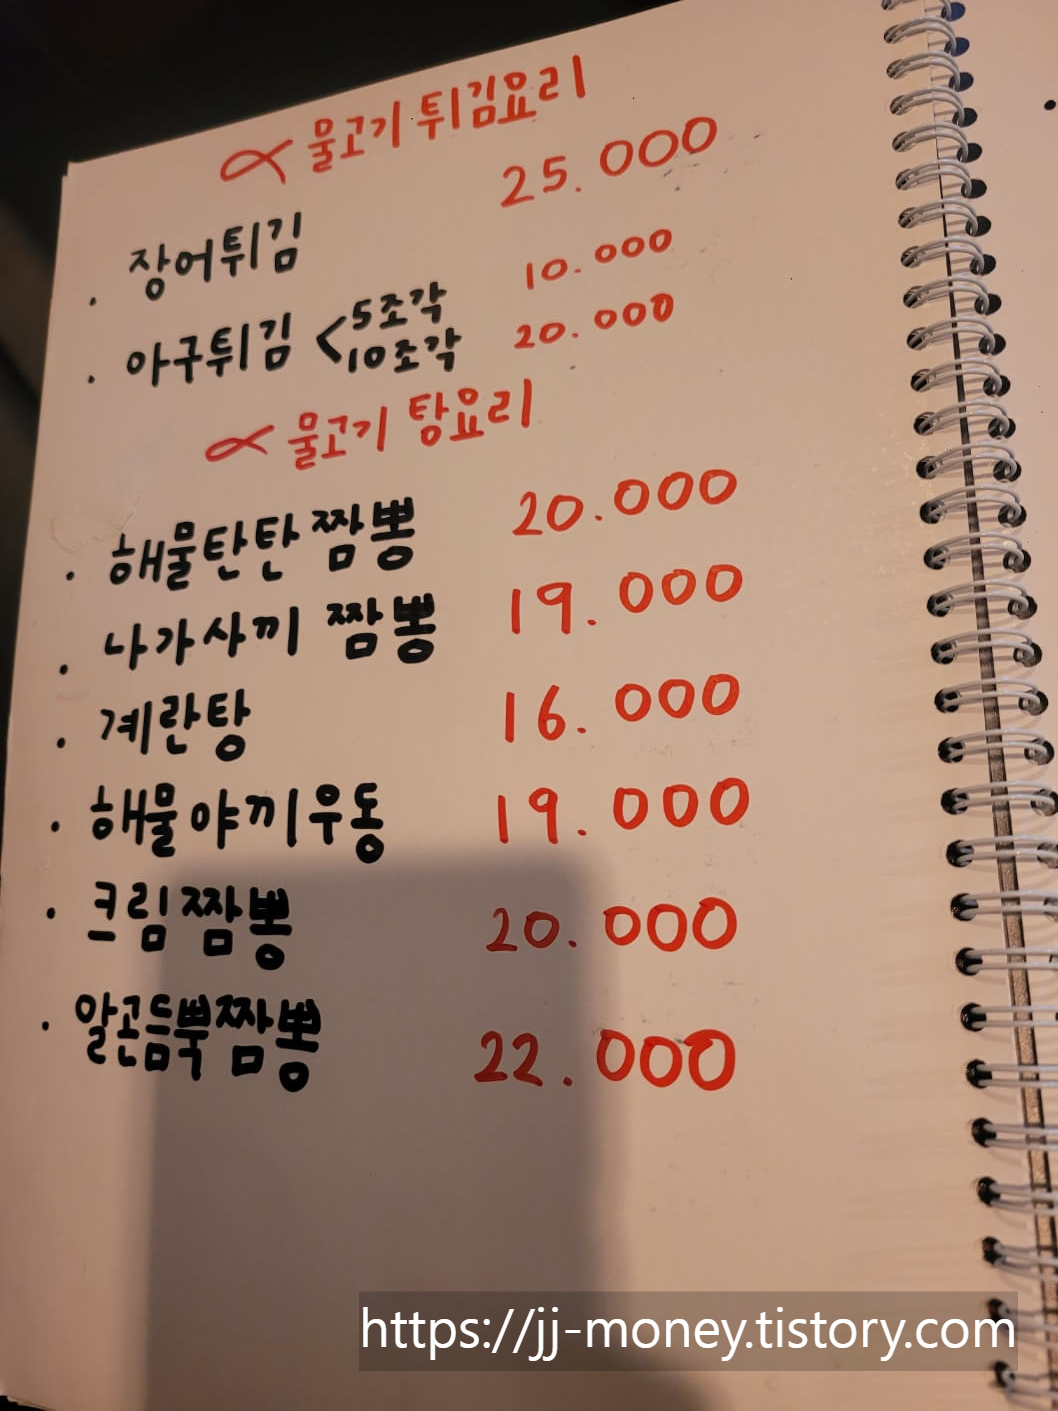 물고기 튀김요리
· 장어튀김 25.000
· 아구튀김 < 5조각 10.000
10조각 20.000
물고기 탕요리
· 해물탄탄짬뽕 20.000
· 나가사끼 짬뽕 19.000
· 계란탕 16.000
· 해물야끼우동 19.000
· 크림짬뽕 20.000
· 알곤듬뿍짬뽕 22.000
https://jj-money.tistory.com